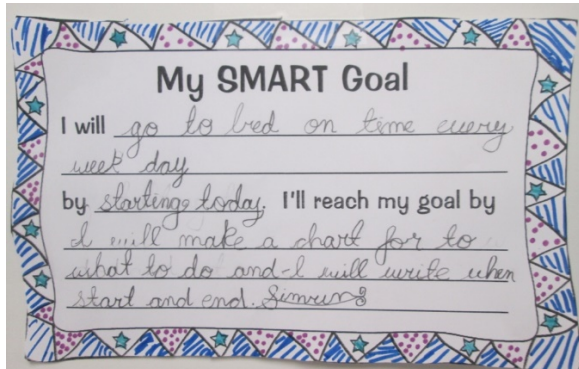 My SMART Goal
I will go to bed on time every
week day
by starting today. I'll reach my goal by
I will make a chart for to
what to do and I will write when
start and end. Simrun